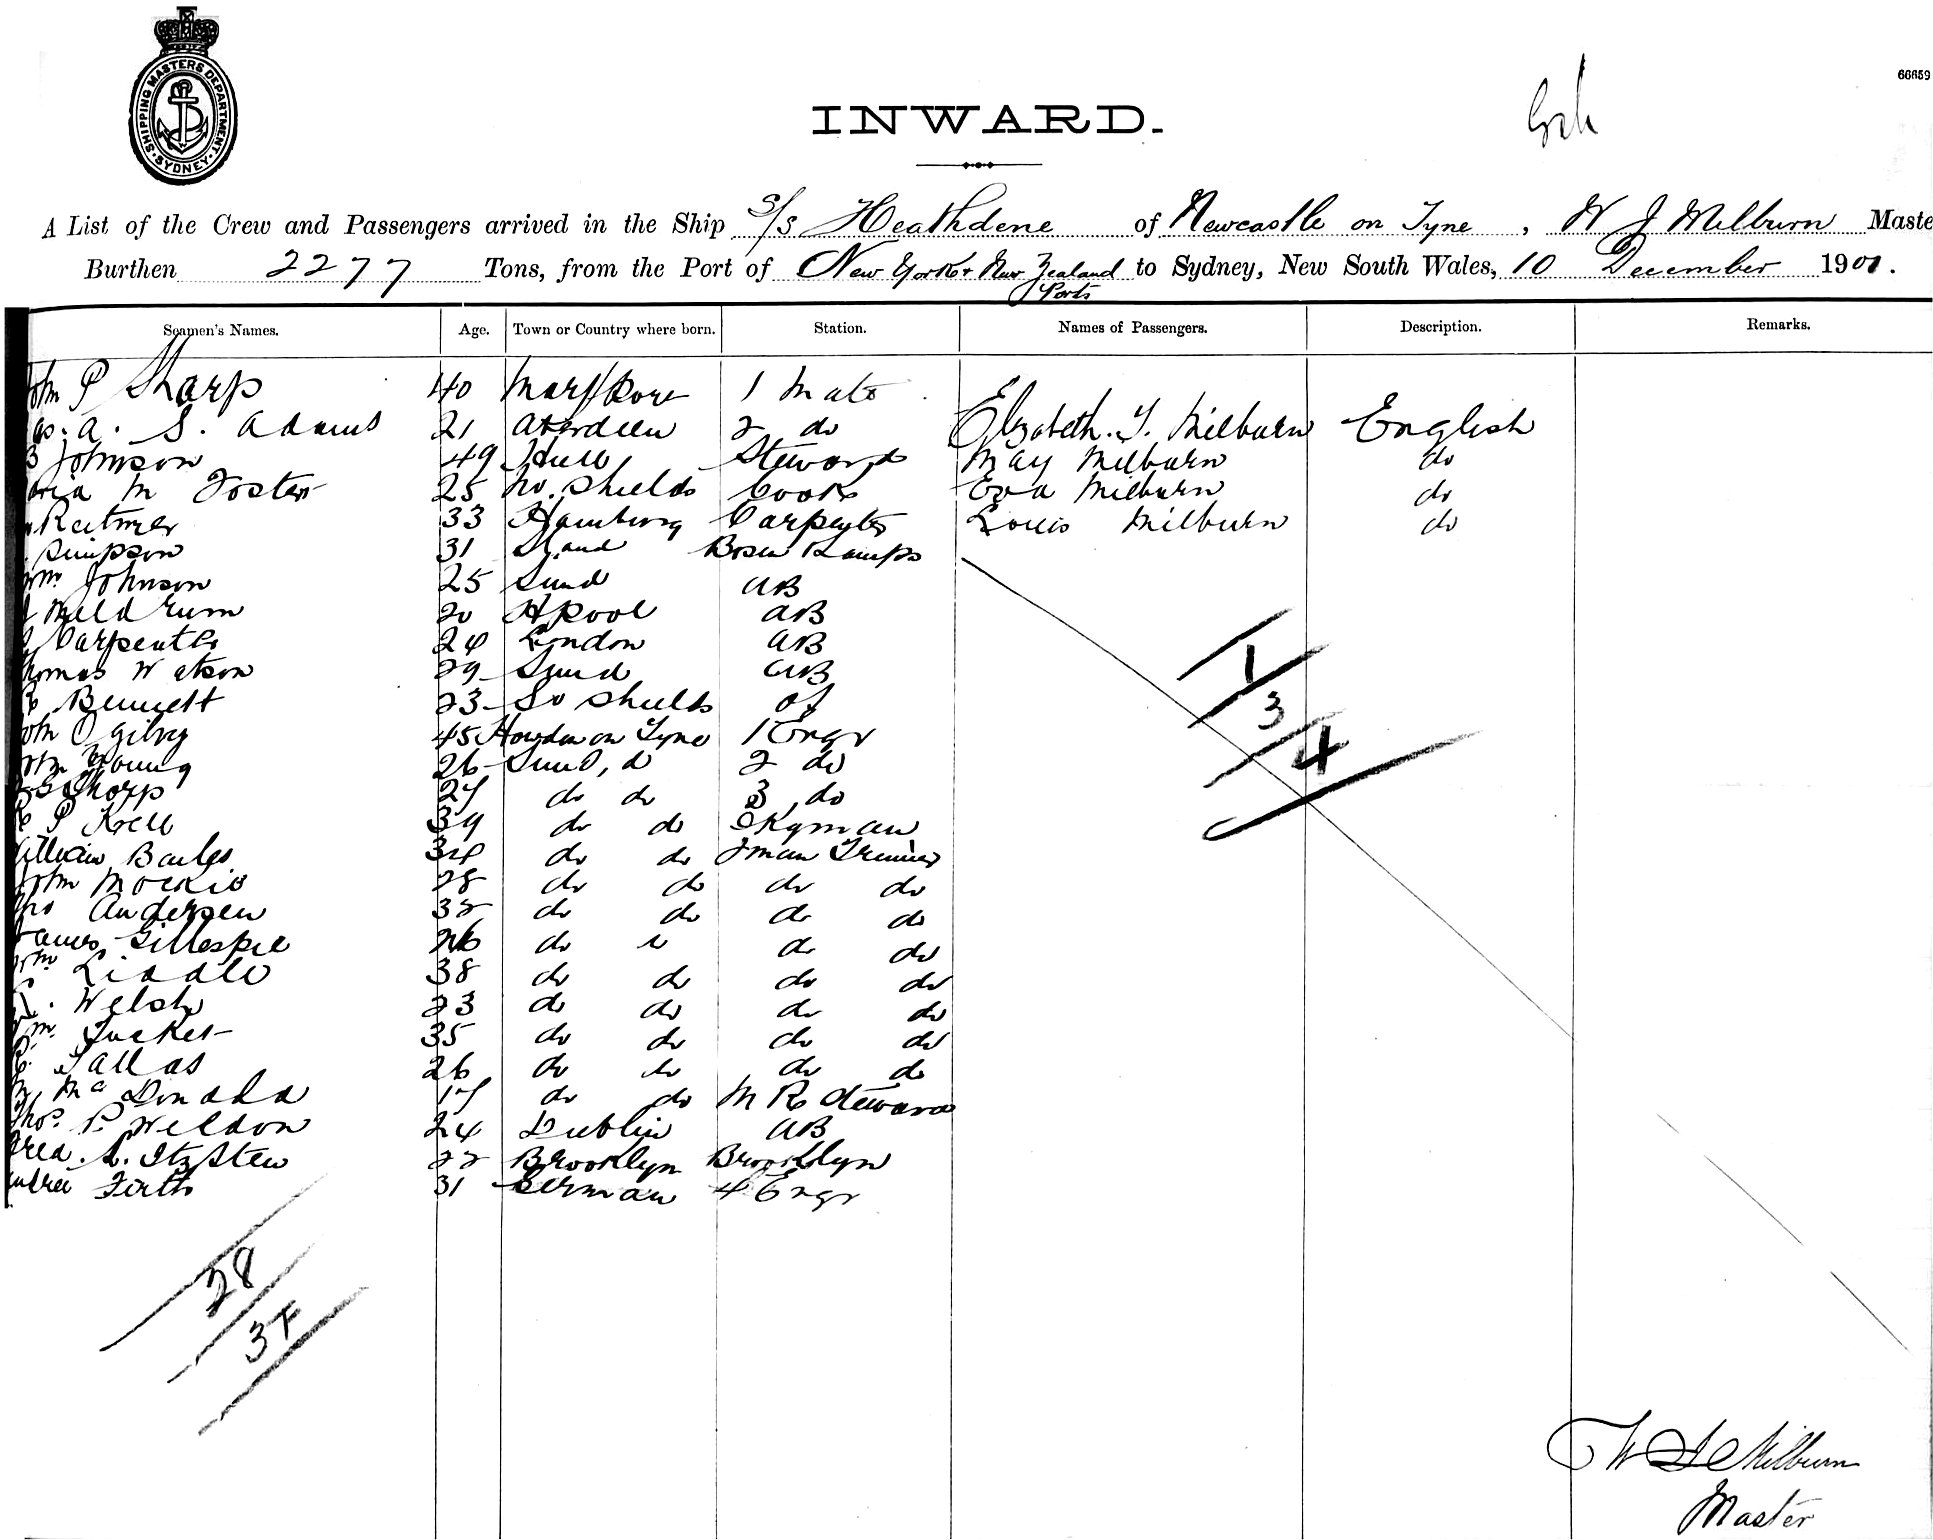 SHIPPING MASTERS DEPARTMENT
· SYDNEY ·
66659
INWARD.
A List of the Crew and Passengers arrived in the Ship S/S Heathdene of Newcastle on Tyne, W J Milburn Maste
Burthen 2277 Tons, from the Port of New York & New Zealand Ports to Sydney, New South Wales, 10 December 1901.
Seamen's Names. Age. Town or Country where born. Station. Names of Passengers. Description. Remarks.
ohn P Sharp 40 1 Mate
as. A. S. Adams 21 Aberdeen 2 do Elizabeth. Milburn English
Johnson 49 Hull Steward May Milburn do
M Foster 25 No. Shields Cook Eva Milburn do
Reitmer 33 Hamburg Carpenter Louis Milburn do
Simpson 31 Sland Bosun Lamps
Wm Johnson 25 Sund AB
Meldrum 20 Hpool AB
Carpenter 24 London AB
homas Watson 29 Sund AB
Bennett 23 So Shields
ohn Ogilvy 45 Howdon on Tyne 1 Engr
Young 26 Sund, d 2 do
Sharp 27 do do 3 do
P Krell 39 do do Dkyman
illiam Bailes 34 do do Fman Trimmer
ohn Morris 28 do do do do
Andersen 32 do do do do
ames Gillespie 26 do do do
Wm Liddle 38 do do do do
Welsh 23 do do do do
Wm. Tucker 35 do do do do
Tallas 26 do do do do
Mc Donald 17 do do M R Steward
Thos. P. Weldon 24 Dublin AB
red. 22 Brooklyn Brooklyn
ndrew Firth 31 German 4 Engr
1
3
4
28
W J Milburn
Master